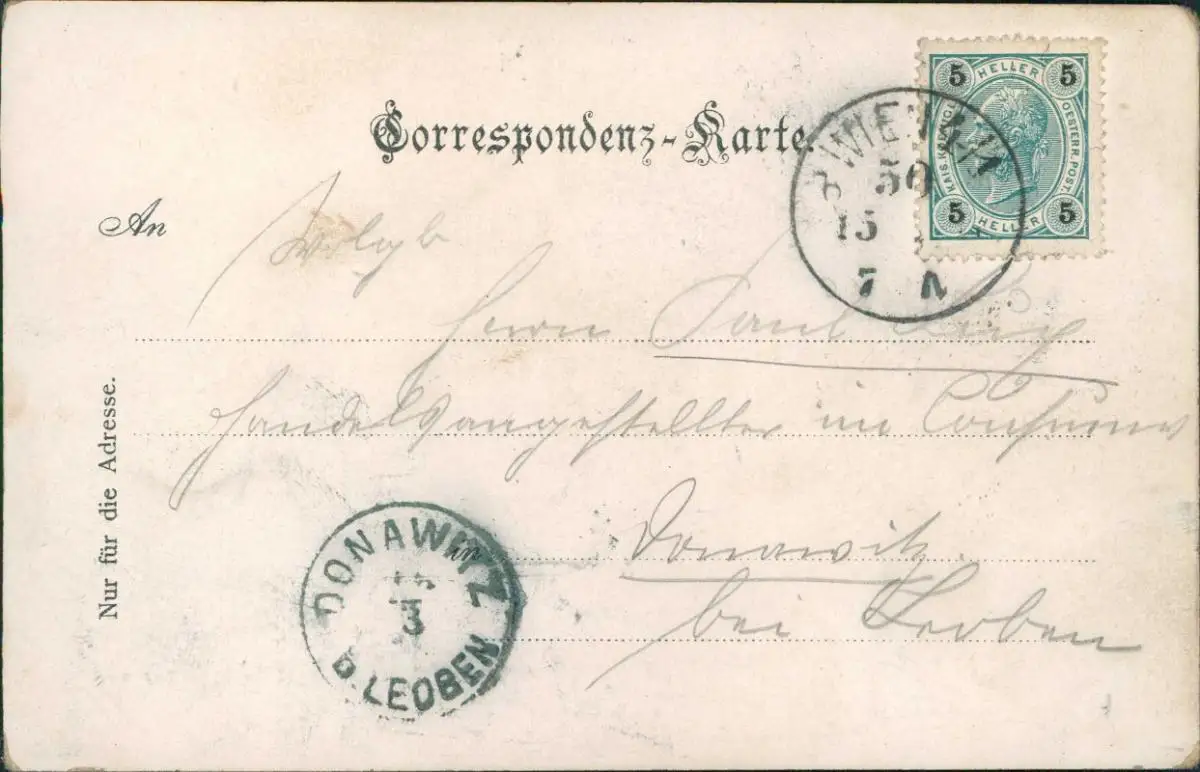 Correspondenz-Karte.
5 HELLER 5
KAIS. KÖNIGL. OESTERR. POST.
5 HELLER 5
WIEN
50
15
7 N
An
Wolgb
Herrn Paul
Handelsangestellter im Consum
in Donawitz.
bei Leoben
Nur für die Adresse.
DONAWITZ
3
B. LEOBEN